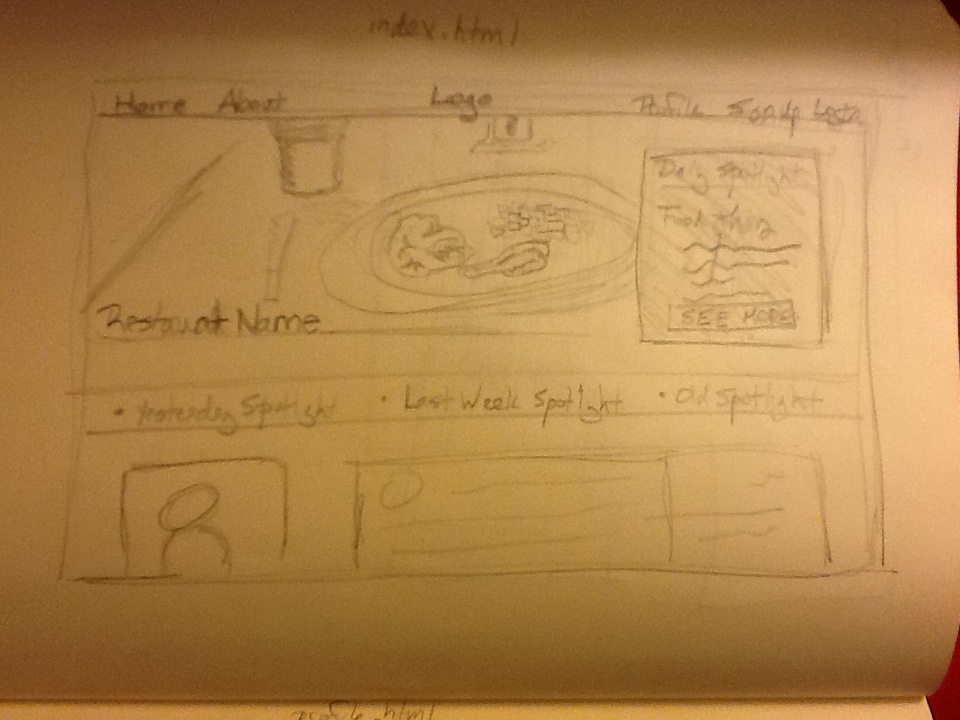 index.html
Home About Logo Profile Sign Up Login
Daily Spotlight
SEE MORE
Restaurant Name
• Yesterday Spotlight • Last Week Spotlight • Old Spotlight
profile.html